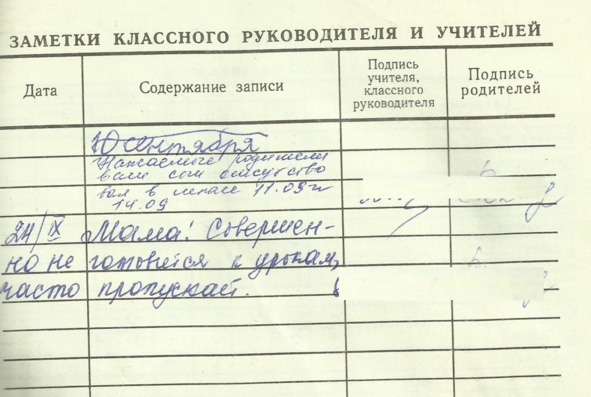 ЗАМЕТКИ КЛАССНОГО РУКОВОДИТЕЛЯ И УЧИТЕЛЕЙ
Дата
Содержание записи
Подпись
учителя,
классного
руководителя
Подпись
родителей
10 сентября
родители
ваш сын отсутство
вал в 11.09 и
14.09
24/IX Мама! Совершен-
но не готовится к урокам,
часто пропускает.